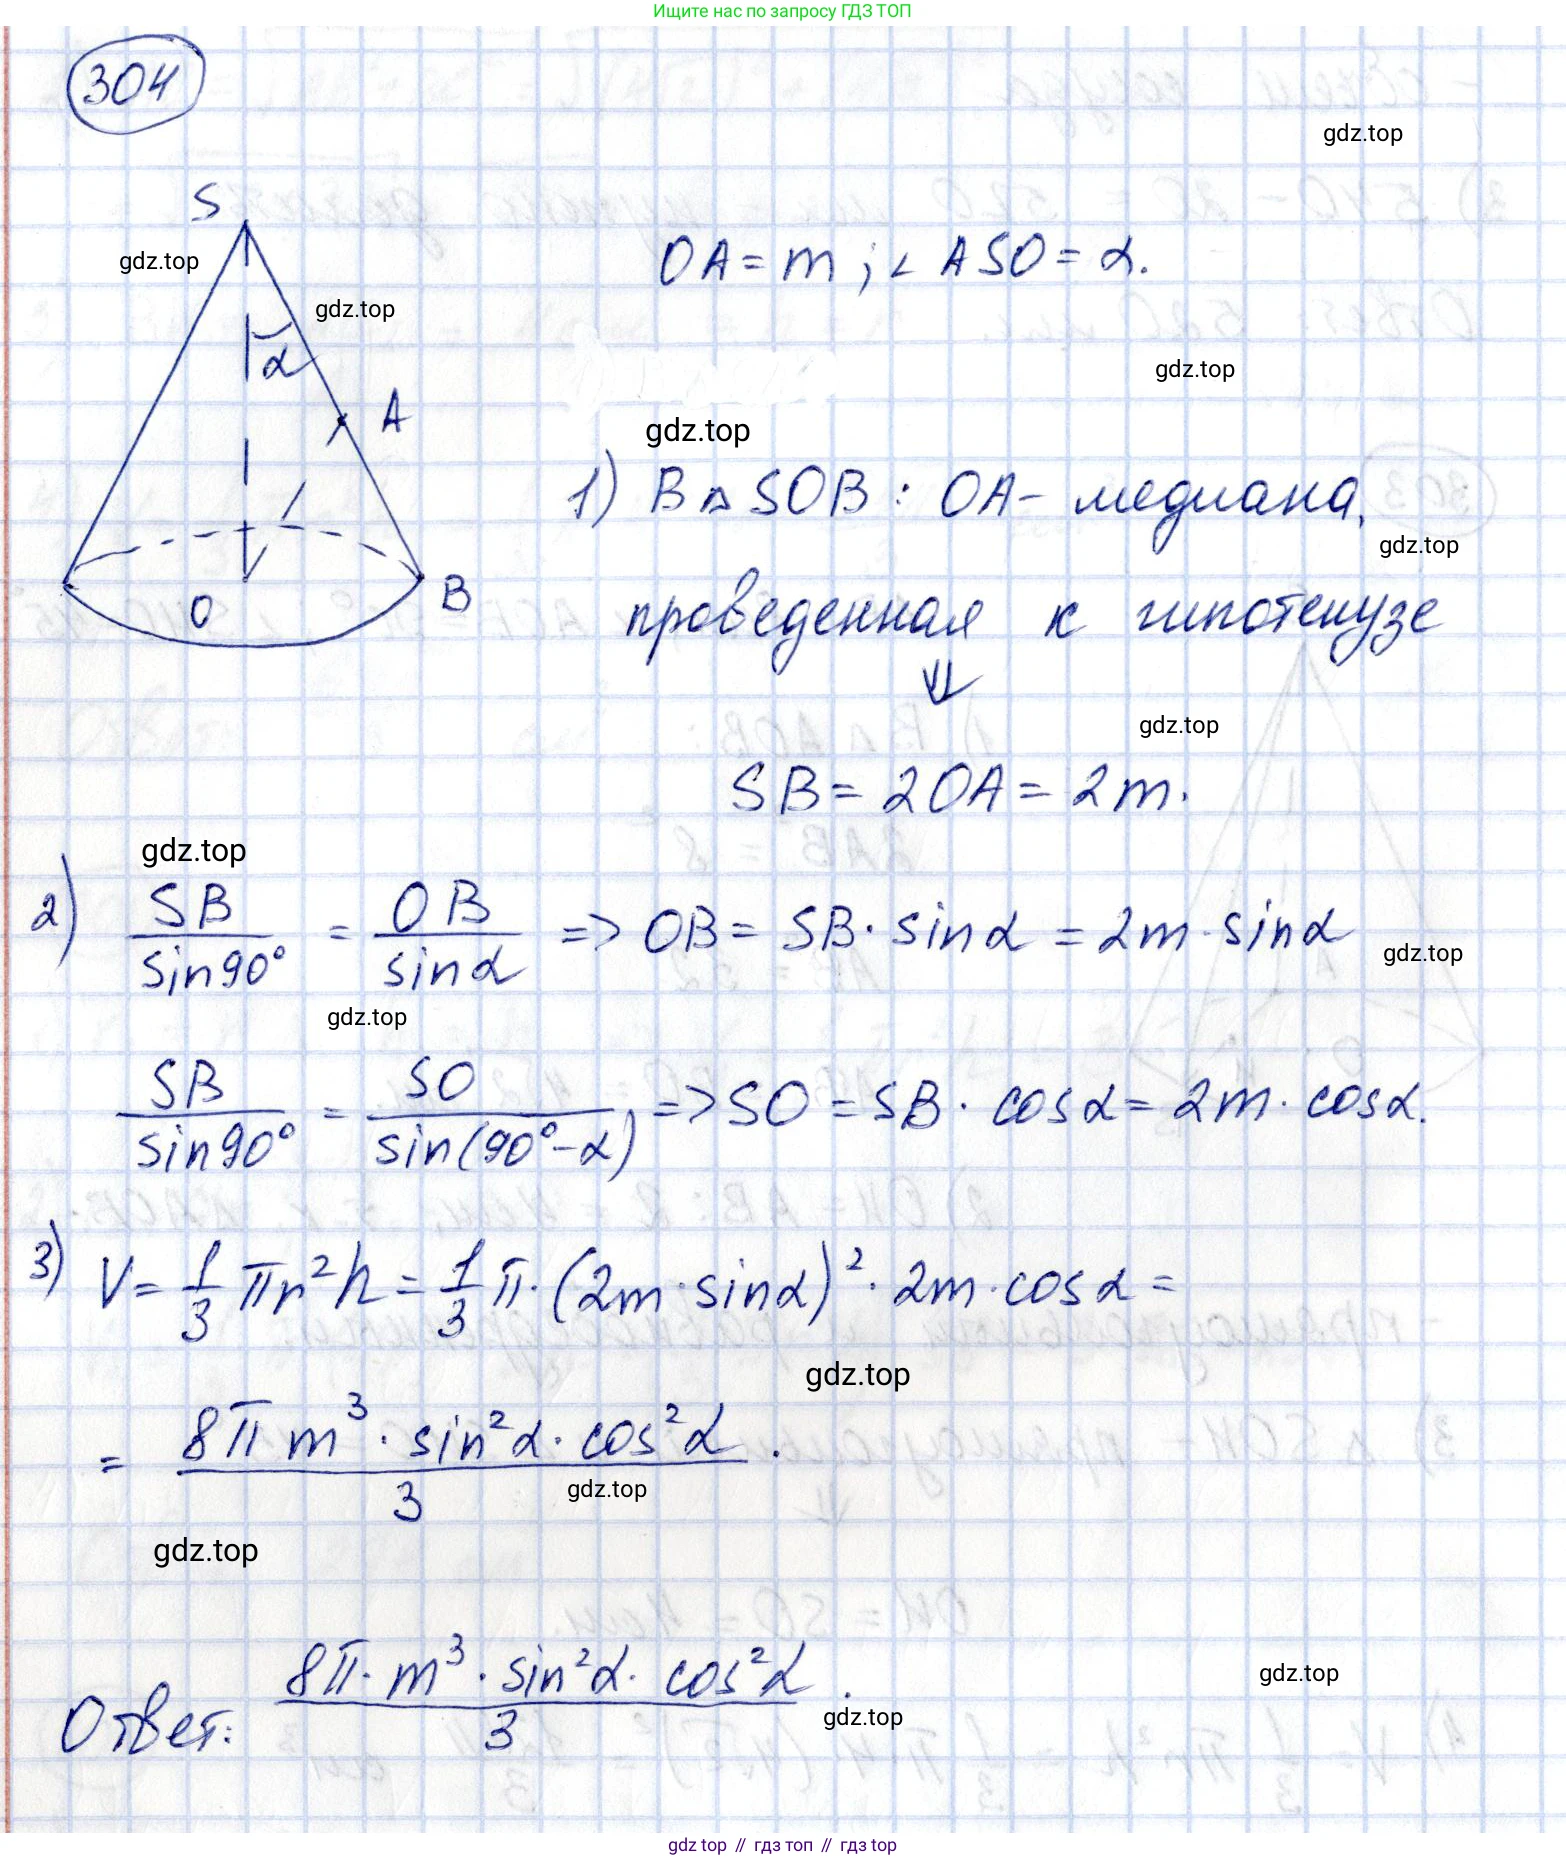 Ищите нас по запросу ГДЗ ТОП
304
gdz.top
S
gdz.top
OA = m ; ∠ ASO = α.
gdz.top
α
gdz.top
A
gdz.top
1) В △ SOB : OA - медиана,
gdz.top
O
B
проведенная к гипотенузе
⇓
gdz.top
SB = 2OA = 2m.
gdz.top
2) SB/sin90° = OB/sinα => OB = SB · sinα = 2m · sinα
gdz.top
gdz.top
SB/sin90° = SO/sin(90°-α) => SO = SB · cosα = 2m · cosα.
3) V = 1/3 πr²h = 1/3 π · (2m · sinα)² · 2m · cosα =
gdz.top
= 8πm³ · sin²α · cos²α/3 .
gdz.top
gdz.top
gdz.top
Ответ: 8π · m³ · sin²α · cos²α/3 .
gdz.top
gdz top // гдз топ // gdz top